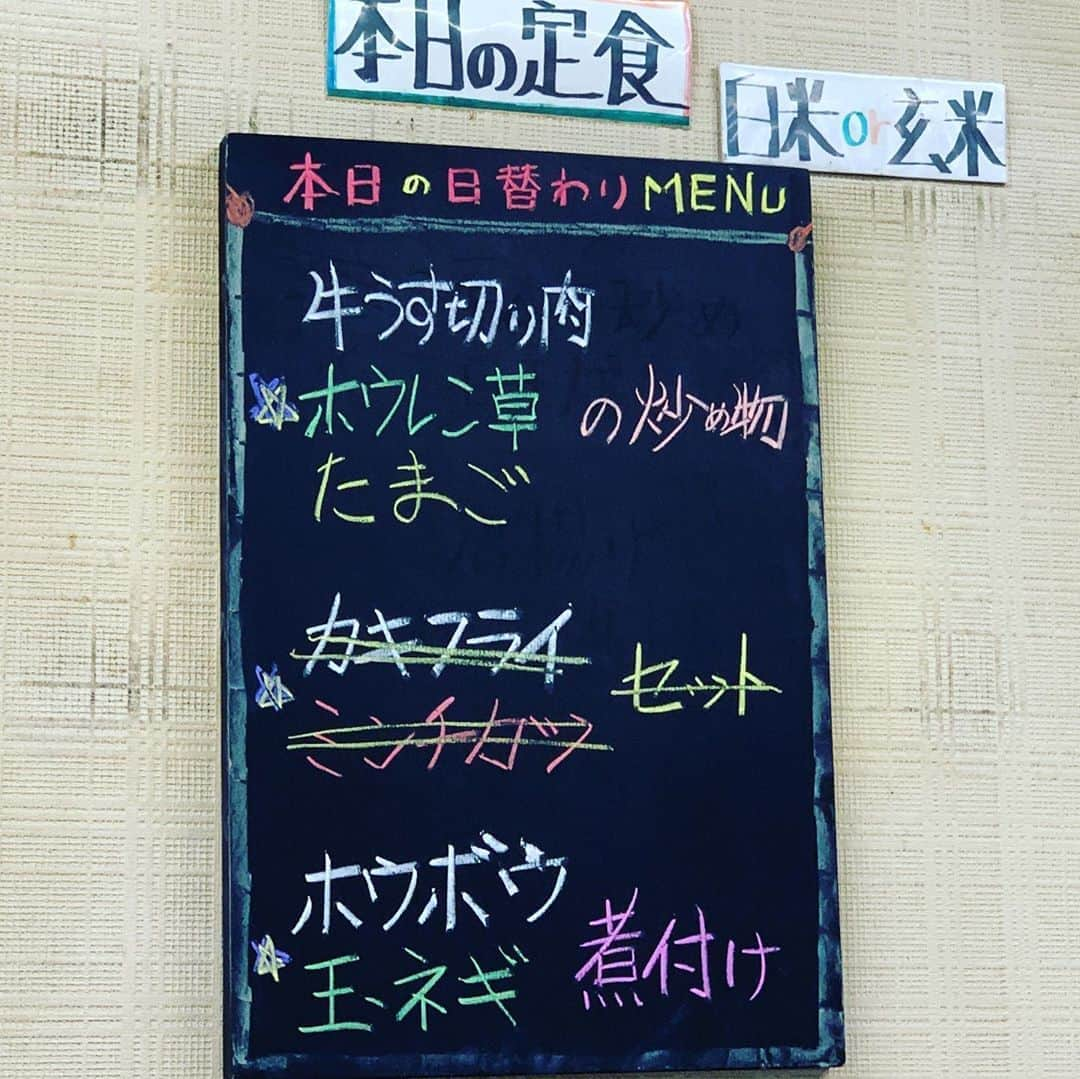 本日の定食
白米or玄米
本日の日替わりMENU
牛うす切り肉
ホウレン草 の炒め物
たまご
カキフライ
セット
ミンチカツ
ホウボウ
玉ネギ 煮付け